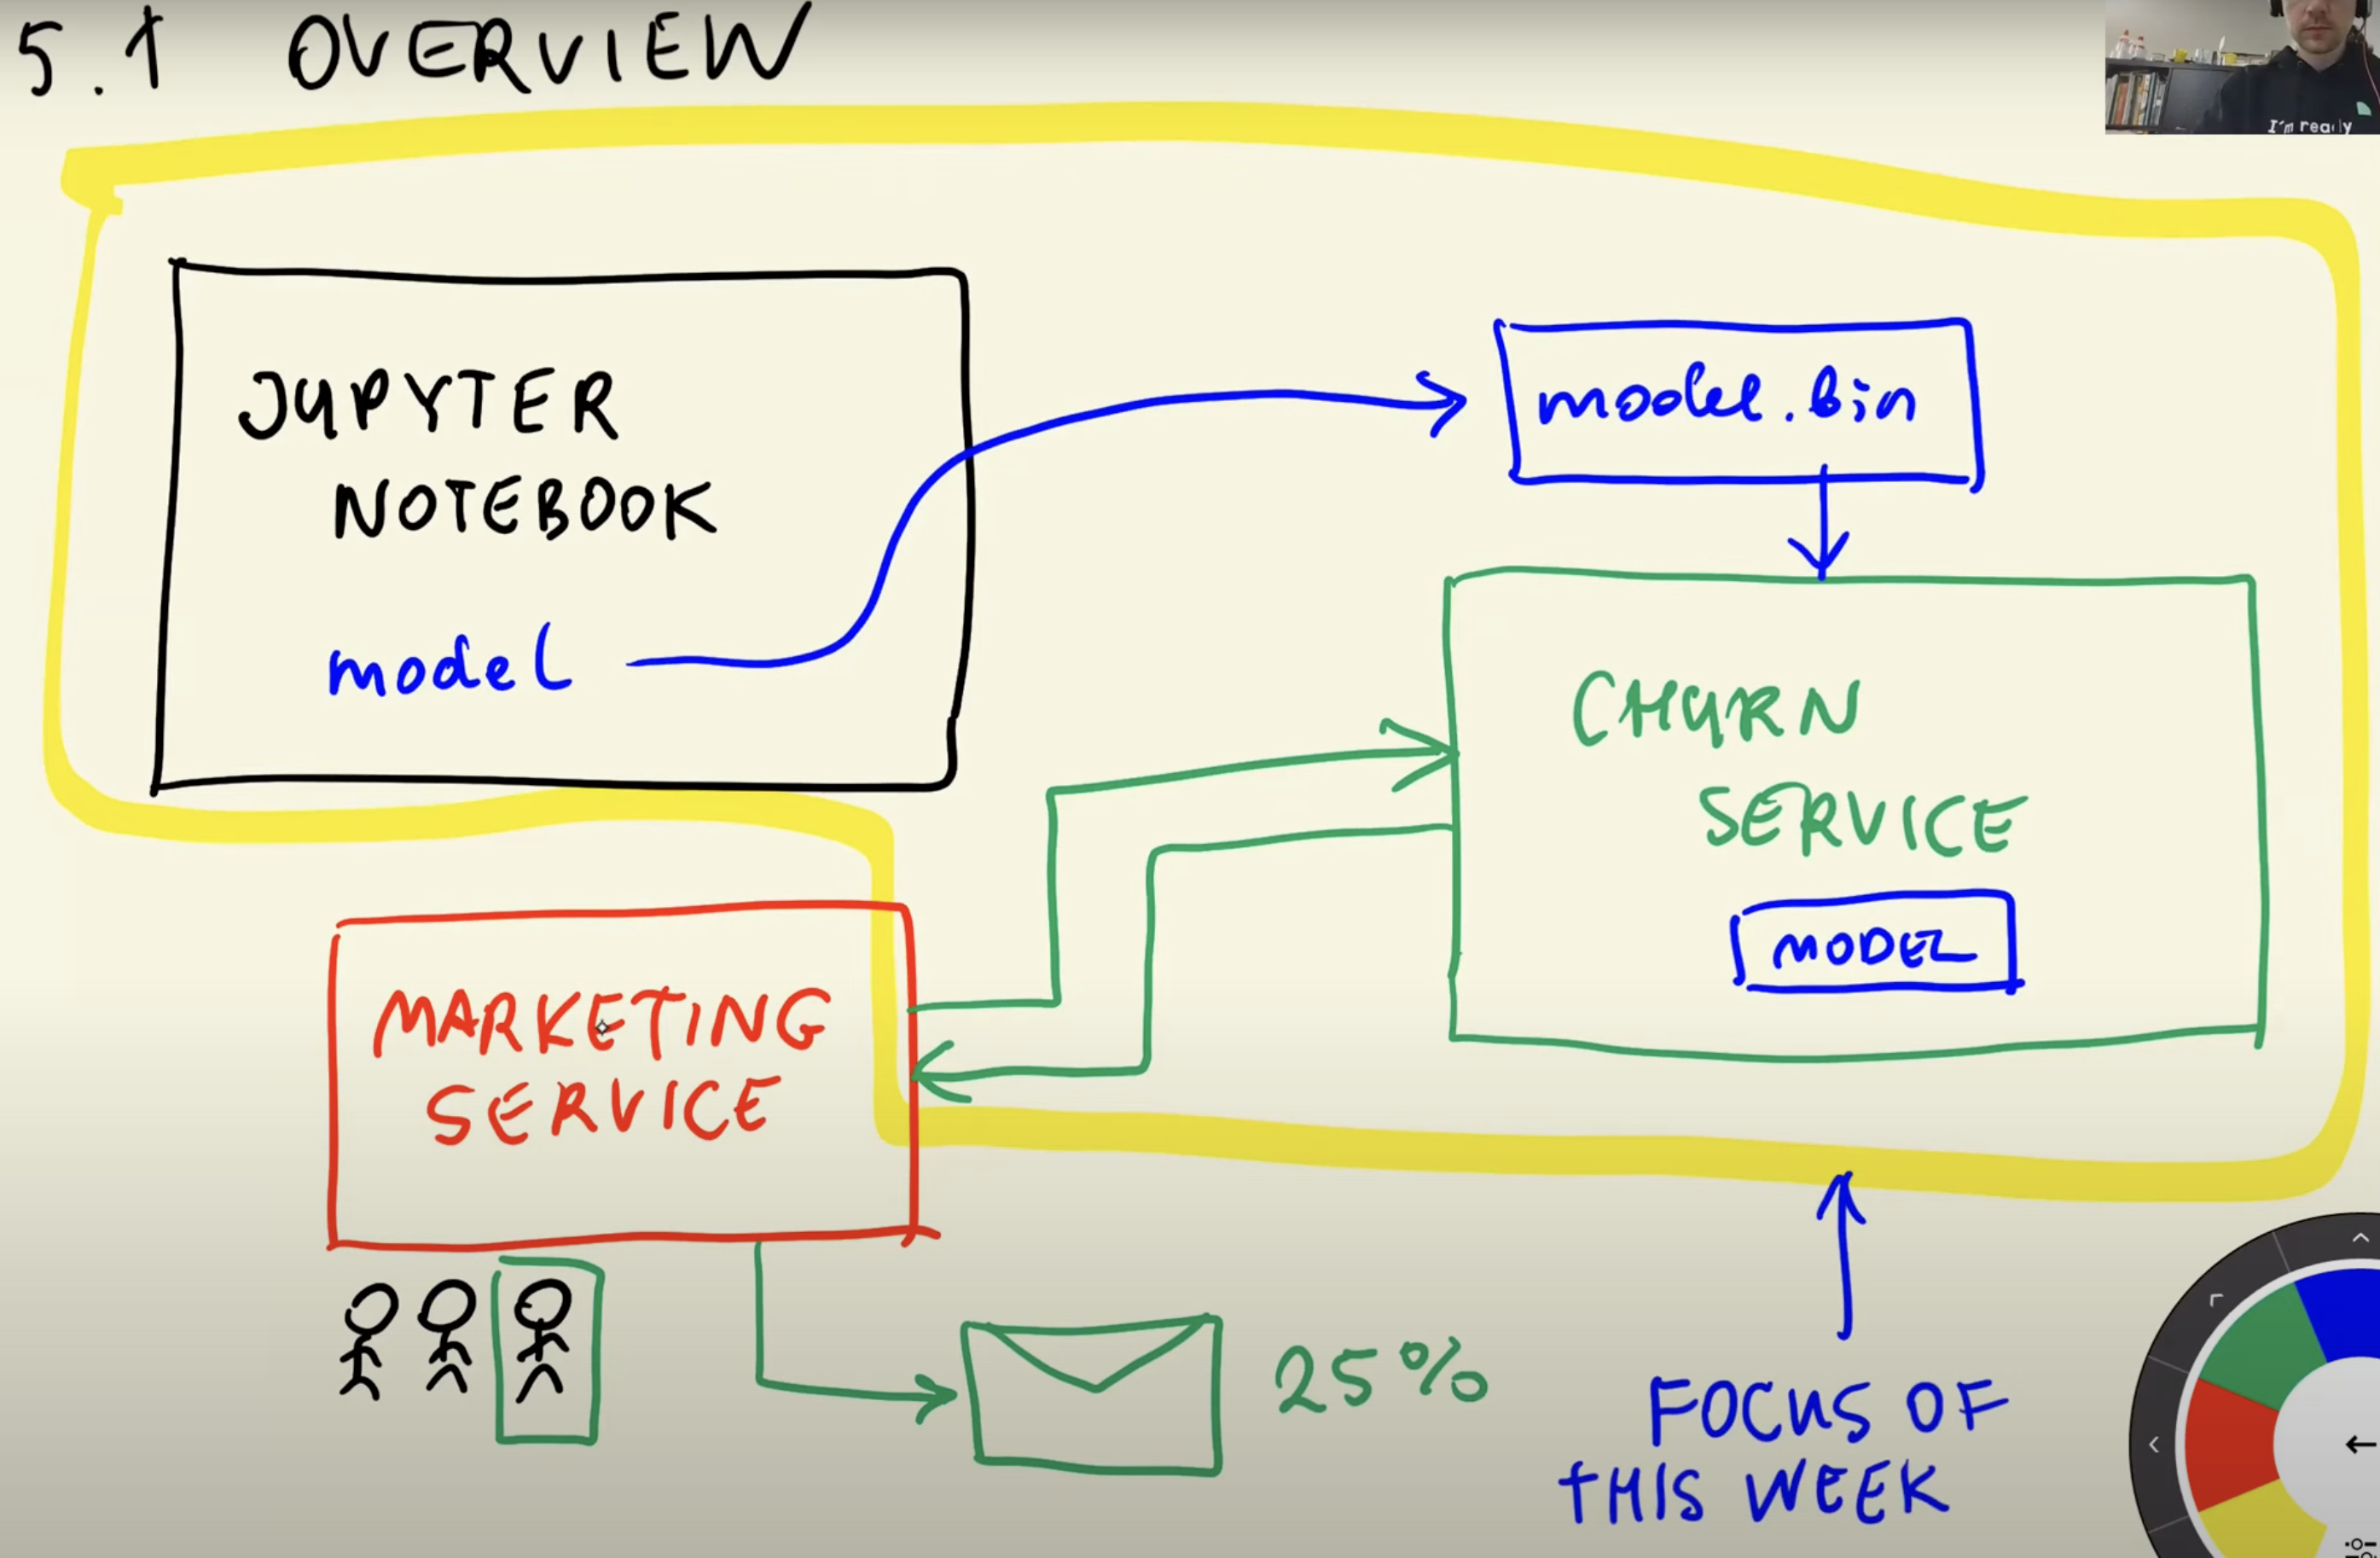 5.1 OVERVIEW
I'm ready
JUPYTER
NOTEBOOK
model
model.bin
CHURN
SERVICE
MODEL
MARKETING
SERVICE
25%
FOCUS OF
THIS WEEK